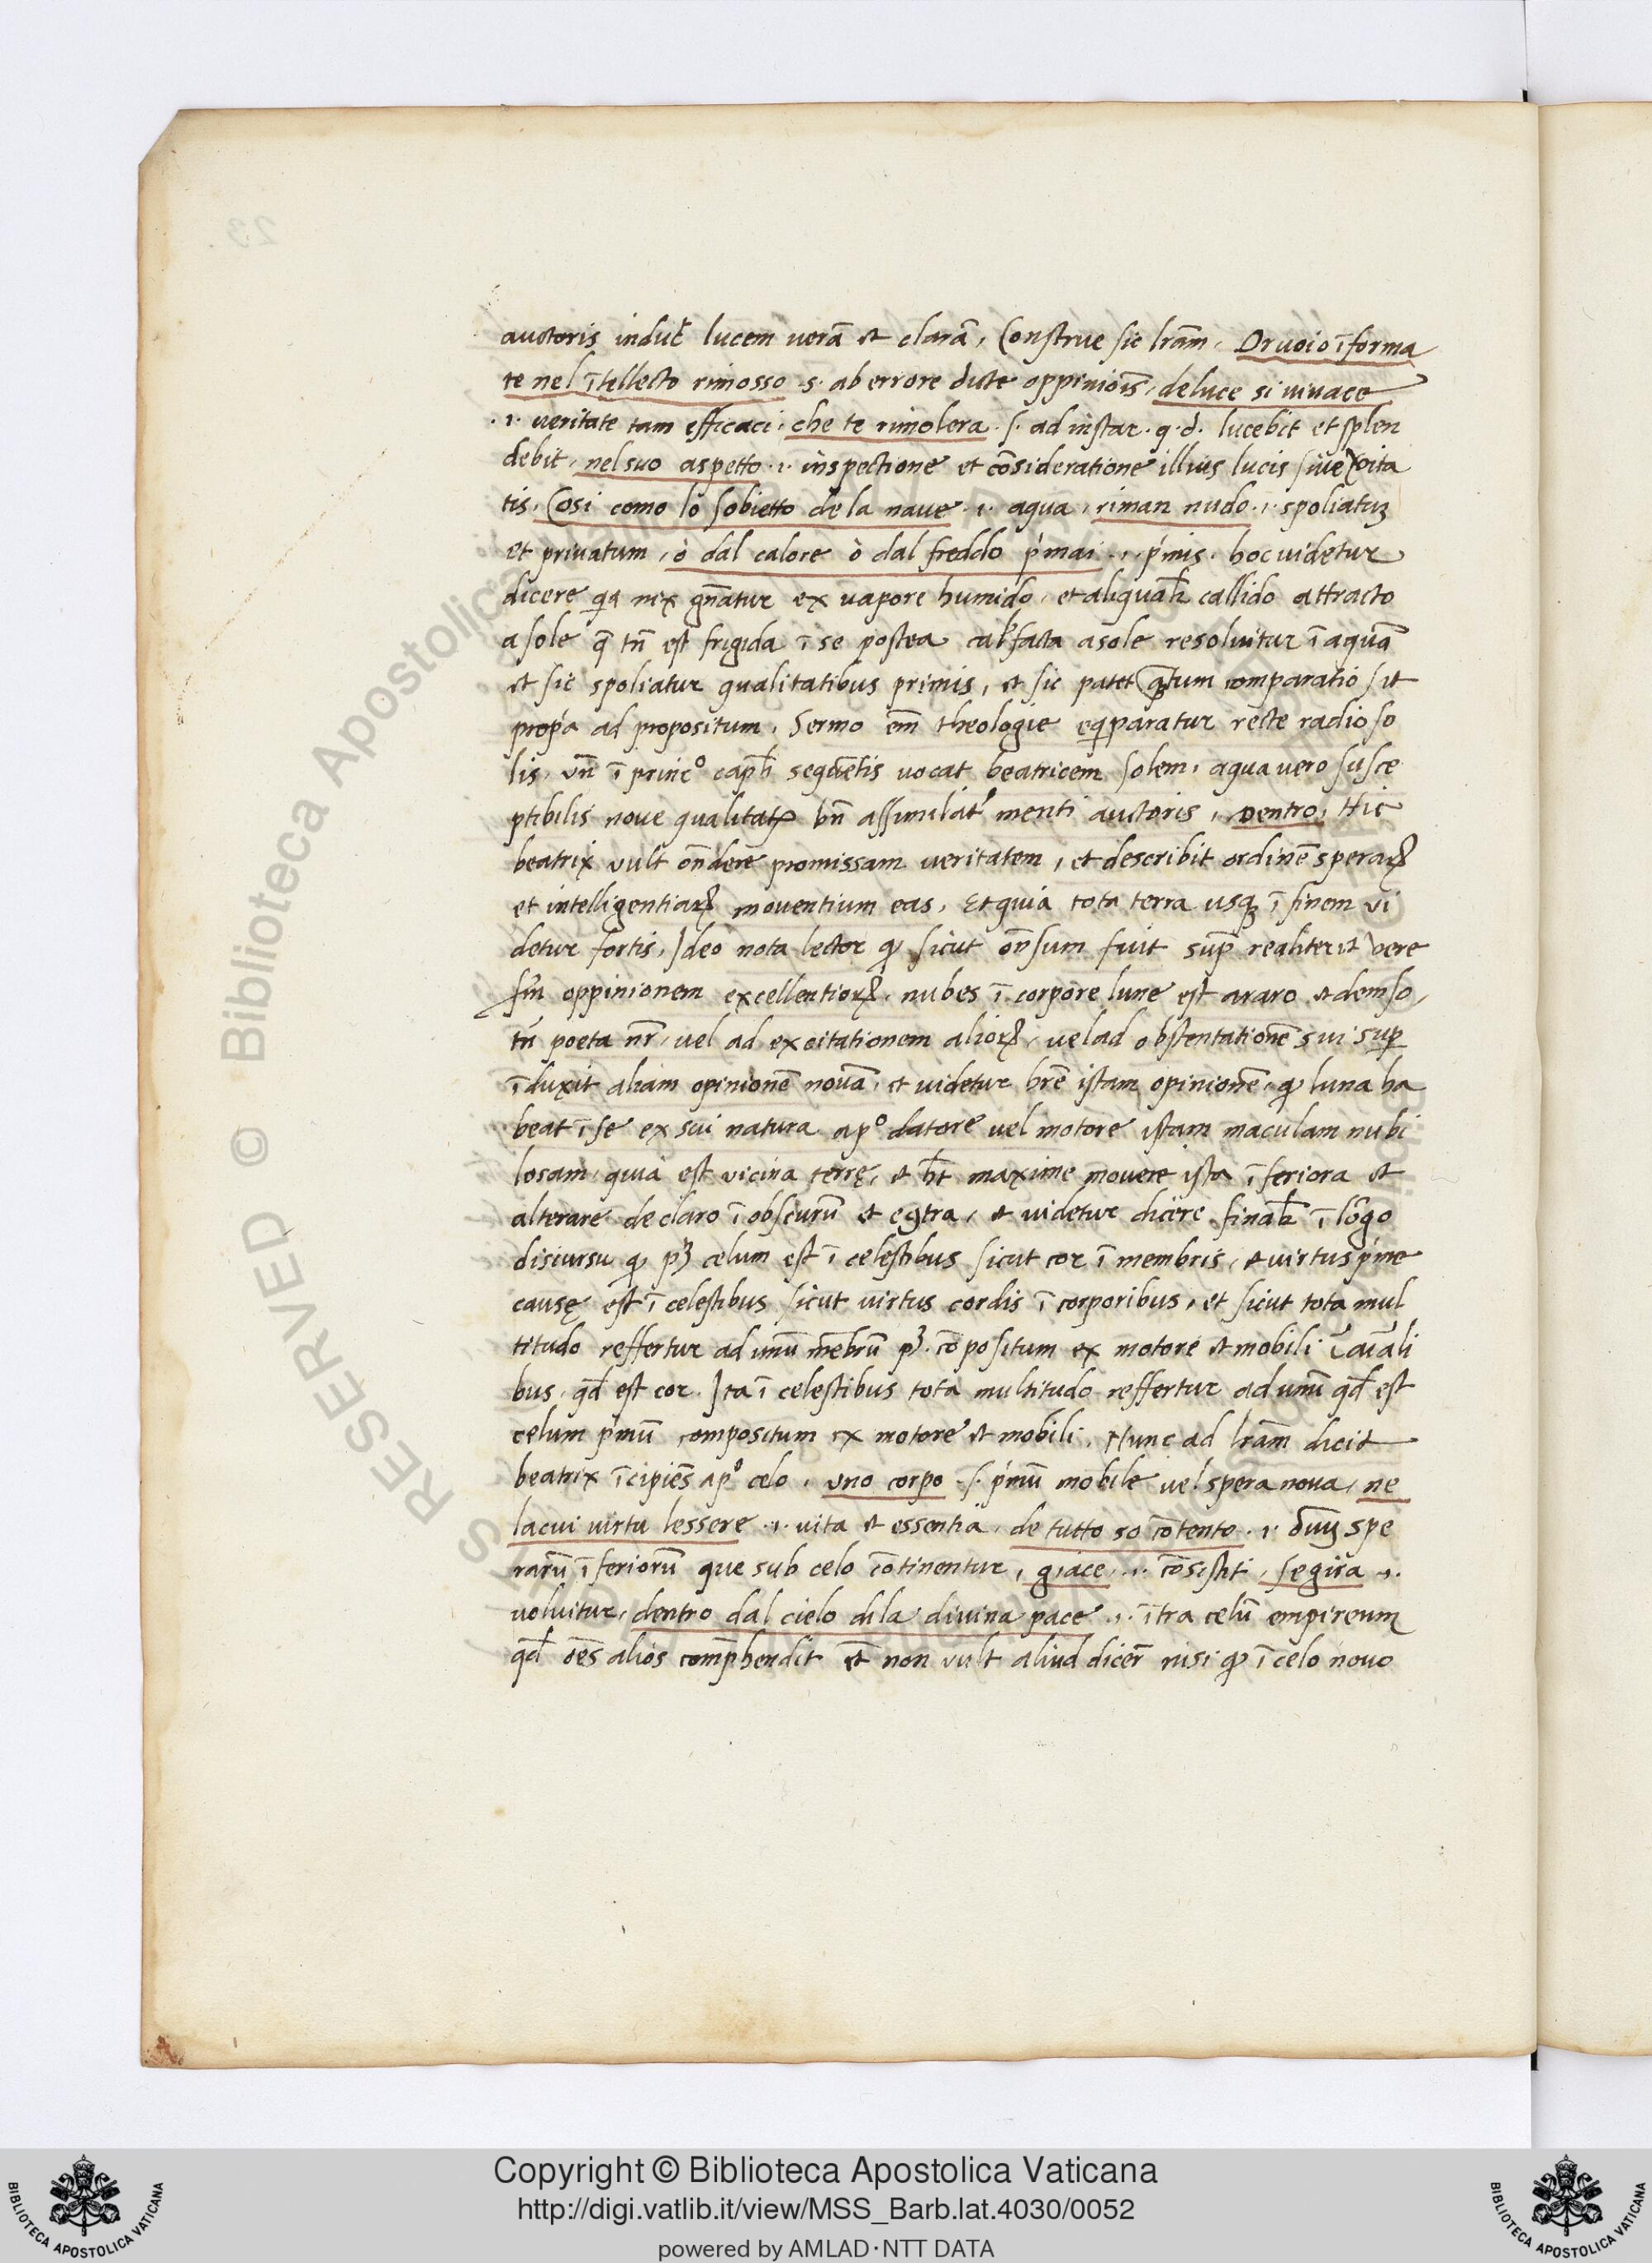 auctoris induc̄t lucem uerā et clarā, Construe sic lrām, Or uoio īforma
te nel ītellecto rimosso .s. ab errore dicte oppiniōis, de luce si uiuace
.i. veritate tam efficaci, che te rimolera .s. ad instar .q.d. lucebit et splen
debit, nel suo aspetto .i. inspectione et cōsideratione illius lucis siue ueita
tis, Cosi como lo sobietto de la naue .i. aqua, riman nudo .i. spoliatuȝ
et priuatum, ò dal calore ò dal freddo p'mai .i. p'mis. hoc uidetur
dicere qꝛ nix gn̄atur ex uapore humido, et aliquatl̄r callido attracto
a sole q̄ tn̄ est frigida ī se postea calefacta a sole resoluitur ī aquā
et sic spoliatur qualitatibus primis, et sic patet q̄tum comparatio sit
prop'a ad propositum, Sermo em̄ theologie eqiparatur recte radio so
lis, vn̄ ī princº cap̄li sequētis uocat beatricem solem, aqua vero susce
ptibilis noue qualitatꝭ bn̄ assimilat' menti auctoris, Dentro, Hic
beatrix vult on̄dere promissam ueritatem, et describit ordinē speraꝝ
et intelligentiaꝝ mouentium eas, Et quia tota terra usqꝫ ī finem vi
detur fortis, Ideo nota lector ꝙ sicut on̄sum fuit sup̄ realiter et vere
sm̄ oppinionem excellentioꝝ, nubes ī corpore lune est a raro et denso,
tn̄ poeta nr̄, uel ad excitationem alioꝝ, uel ad obstentationē sui sup̄
īduxit aliam opinionē nouā, et videtur hr̄e istam opinionē, ꝙ luna ha
beat ī se ex sui natura a pº datore uel motore istam maculam nubi
losam, quia est vicina terrę, et ht̄ maxime mouere ista īferiora et
alterare de claro ī obscurū et eꝯtra, et uidetur dicere finalr̄ ī lōgo
discursu ꝙ pȝ celum est ī celestibus sicut cor ī membris, et uirtus p'me
causę est ī celestibus sicut virtus cordis ī corporibus, et sicut tota mul
titudo reffertur ad unū mēbrū pȝ. cōpositum ex motore et mobili ī aīali
bus, qd̄ est cor. Ita ī celestibus tota multitudo reffertur ad unū qd̄ est
celum p'mū compositum ex motore et mobili. Nunc ad lrām dicit
beatrix īcipiēs a pº celo. Uno corpo .s. p'mū mobile uel spera nona, ne
la cui virtu lessere .i. vita et essentia, de tutto so cōtento .i. om̄iuȝ spe
rarū īferiorū que sub celo cōtinentur, giace .i. cōsistit, se gira .i.
voluitur, dentro dal cielo dila diuina pace .i. ītra celū empireum
qd̄ oēs alios comp̄hendit et non vult aliud dicer̄ nisi ꝙ ī celo nouo
23.
RESERVED © Biblioteca Apostolica
Copyright © Biblioteca Apostolica Vaticana
http://digi.vatlib.it/view/MSS_Barb.lat.4030/0052
powered by AMLAD·NTT DATA
BIBLIOTECA APOSTOLICA VATICANA
BIBLIOTECA APOSTOLICA VATICANA